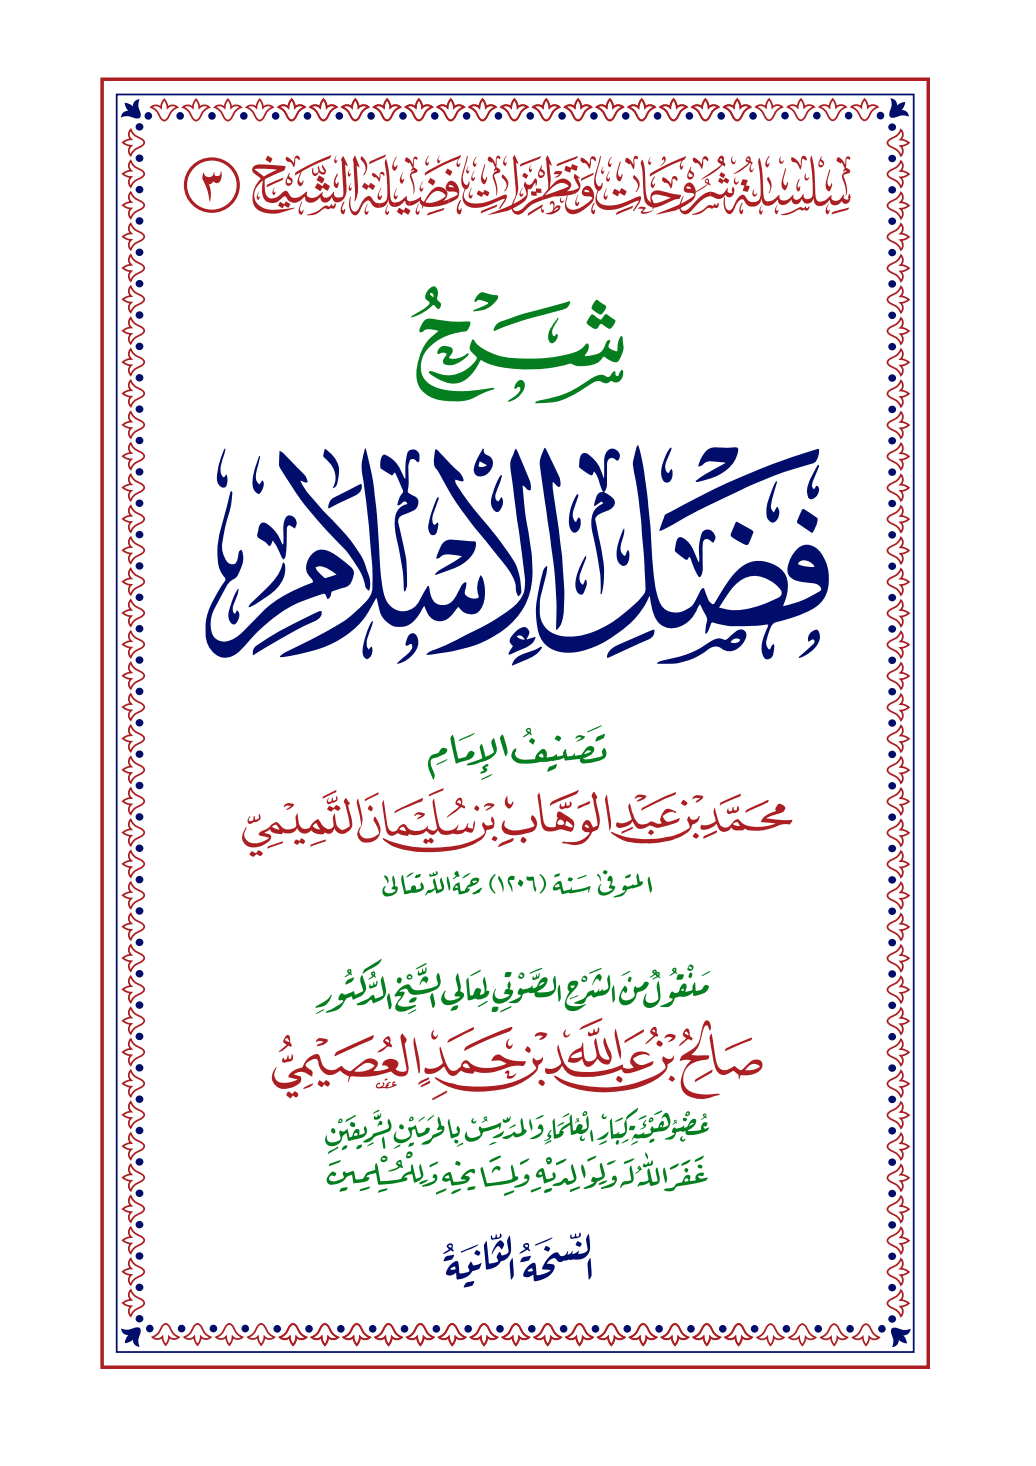 سِلْسِلَةُ شُرُوحَاتِ وَتَطْرِيزَاتِ فَضِيلَةِ الشَّيْخِ ٣
شَرْحُ
فَضْلِ الْإِسْلَامِ
تَصْنِيفُ الإِمَامِ
مُحَمَّدِ بْنِ عَبْدِ الوَهَّابِ بْنِ سُلَيْمَانَ التَّمِيْمِيِّ
المتوفى سَنة (١٢٠٦) رحمَهُ اللّٰه تعَالىٰ
مَنْقُولٌ مِنَ الشَّرْحِ الصَّوْتِي لِمَعَالِي الشَّيْخِ الدُّكْتُورِ
صَالِحُ بْنُ عَبْدِ اللَّهِ بْنِ حَمَدٍ العُصَيْمِيُّ
عُضْوُ هَيْئَةِ كِبَارِ الْعُلَمَاءِ وَالمدَرِّسُ بِالحَرَمَيْنِ الشَّرِيفَيْنِ
غَفَرَ اللّٰهُ لَهُ وَلِوَالِدَيْهِ وَلِمَشَايِخِهِ وَلِلْمُسْلِمِينَ
النُّسْخَةُ الثَّانِيَةُ